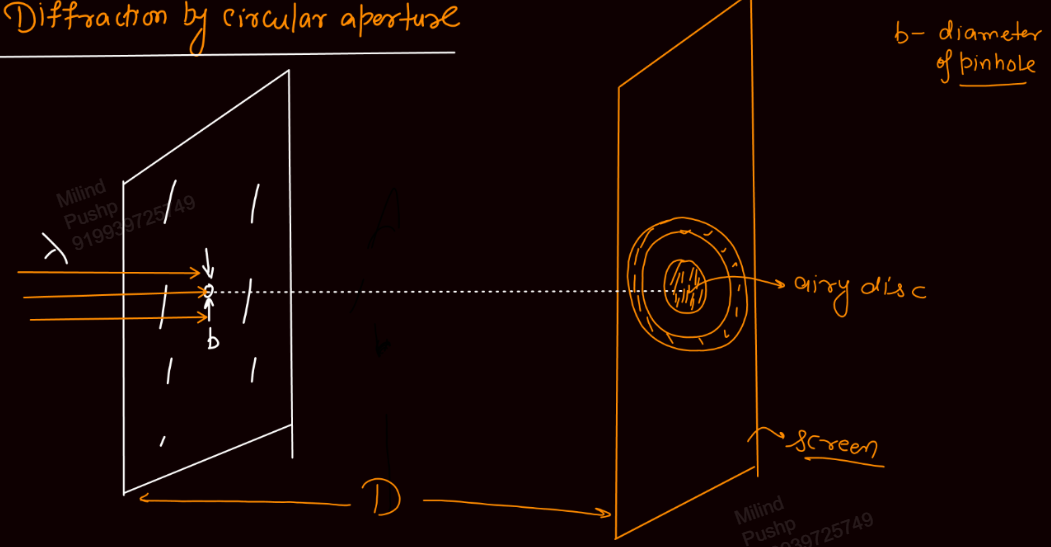 Diffraction by circular aperture
b- diameter
of pinhole
Milind
Pushp
919939725749
λ
b
airy disc
screen
D
Milind
Pushp